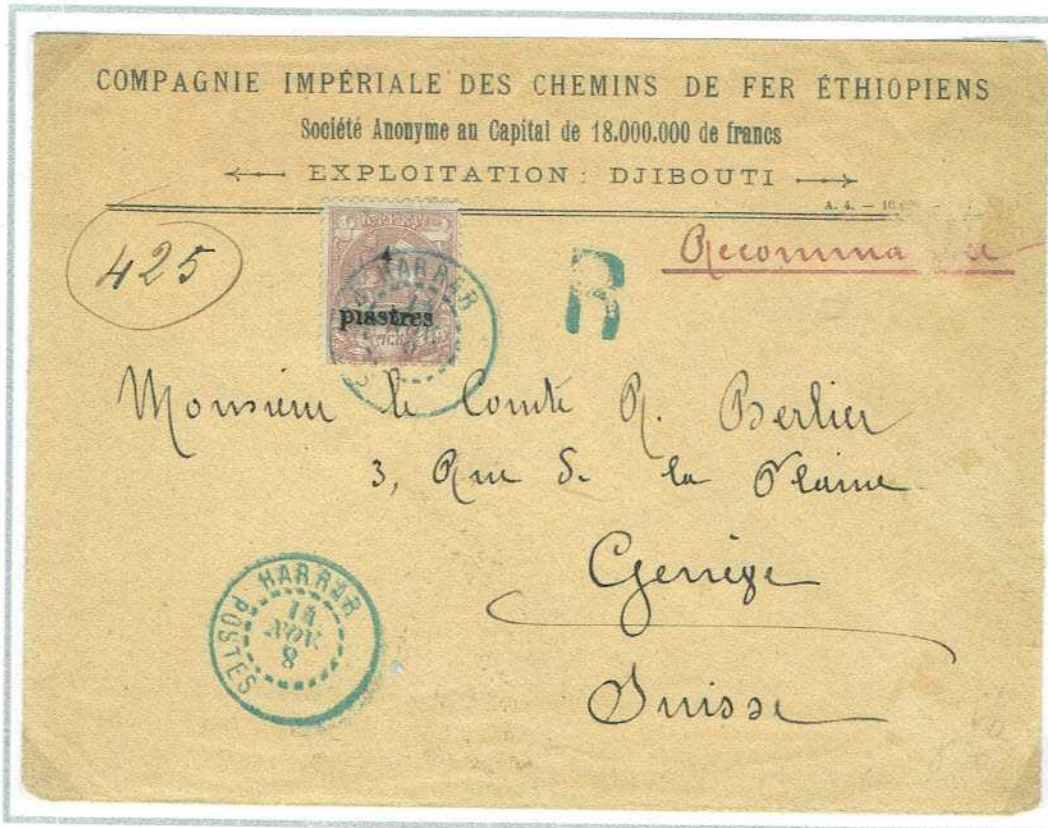 COMPAGNIE IMPÉRIALE DES CHEMINS DE FER ÉTHIOPIENS
Société Anonyme au Capital de 18.000.000 de francs
EXPLOITATION : DJIBOUTI
A. 4. —
425
piastres
HARRAR
R
Monsieur le Comte R. Berlier
3, Rue de la Plaine
Genève
Suisse
HARRAR
14
NOV
8
POSTES